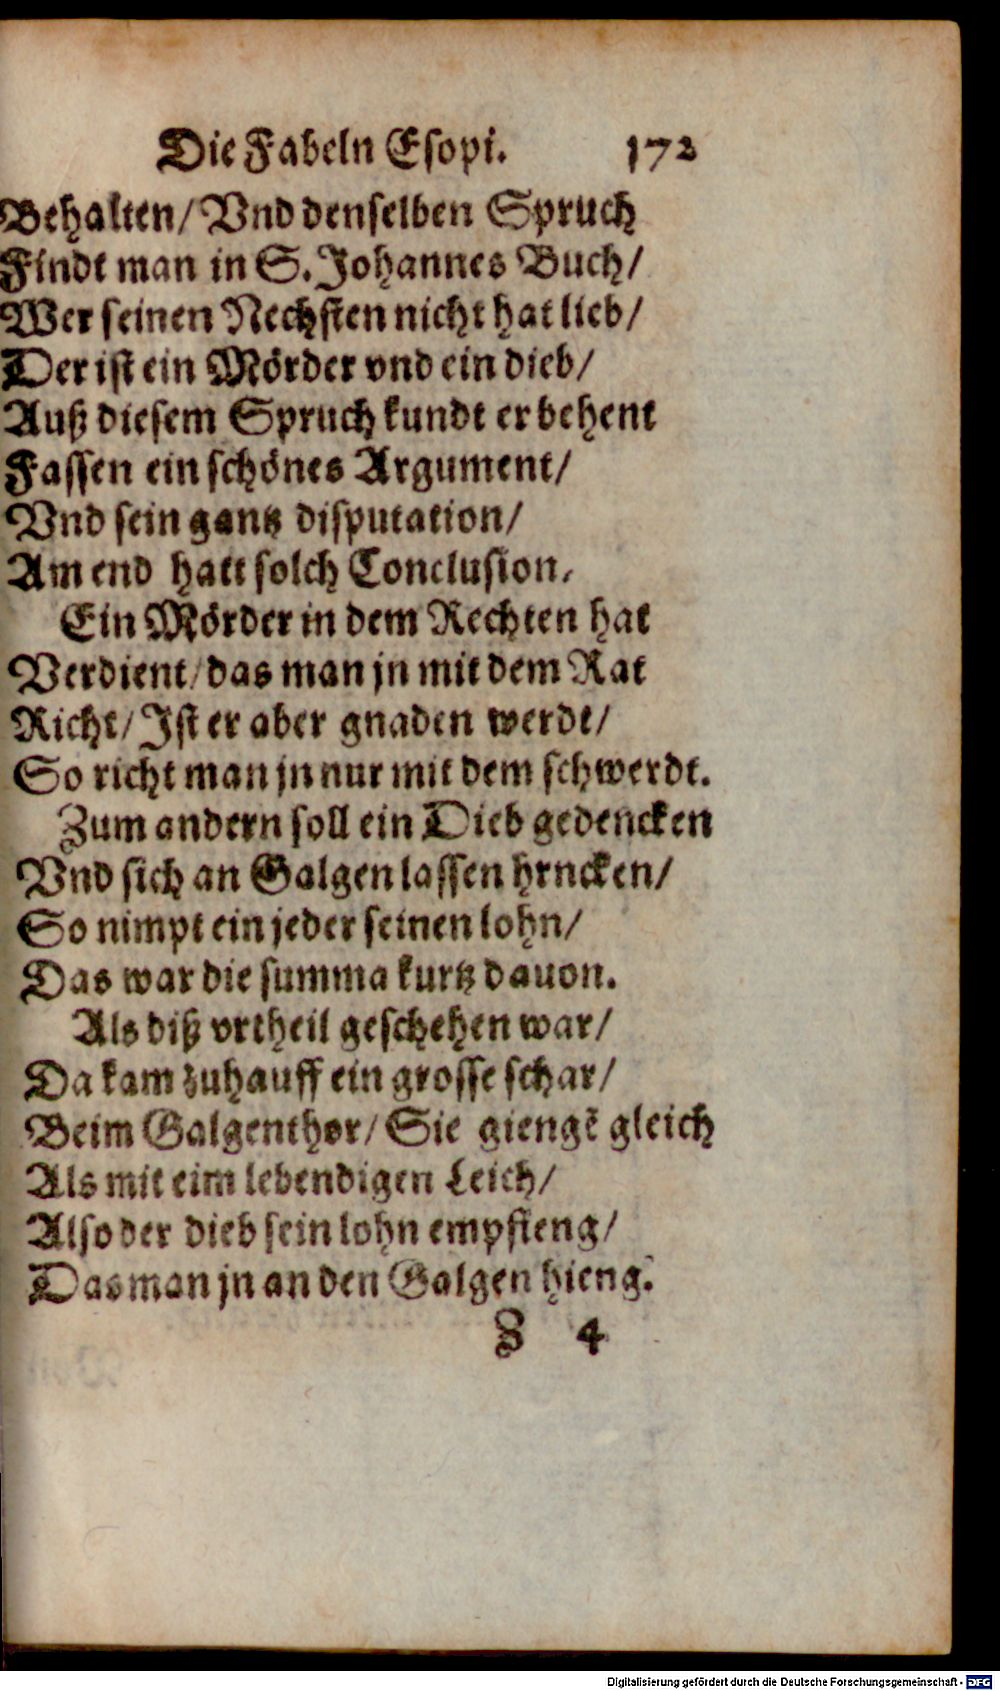 Die Fabeln Esopi. 172
Behalten/ Vnd denselben Spruch
Findt man in S. Johannes Buch/
Wer seinen Nechsten nicht hat lieb/
Der ist ein Mörder vnd ein dieb/
Auß diesem Spruch kundt er behent
Fassen ein schönes Argument/
Vnd sein gantz disputation/
Am end hatt solch Conclusion.
Ein Mörder in dem Rechten hat
Verdient/ das man jn mit dem Rat
Richt/ Ist er aber gnaden werdt/
So richt man jn nur mit dem schwerdt.
Zum andern soll ein Dieb gedencken
Vnd sich an Galgen lassen hrncken/
So nimpt ein jeder seinen lohn/
Das war die summa kurtz dauon.
Als diß vrtheil geschehen war/
Da kam zuhauff ein grosse schar/
Beim Galgenthor/ Sie giengẽ gleich
Als mit eim lebendigen Leich/
Also der dieb sein lohn empfieng/
Das man jn an den Galgen hieng.
Z 4
Digitalisierung gefördert durch die Deutsche Forschungsgemeinschaft - DFG